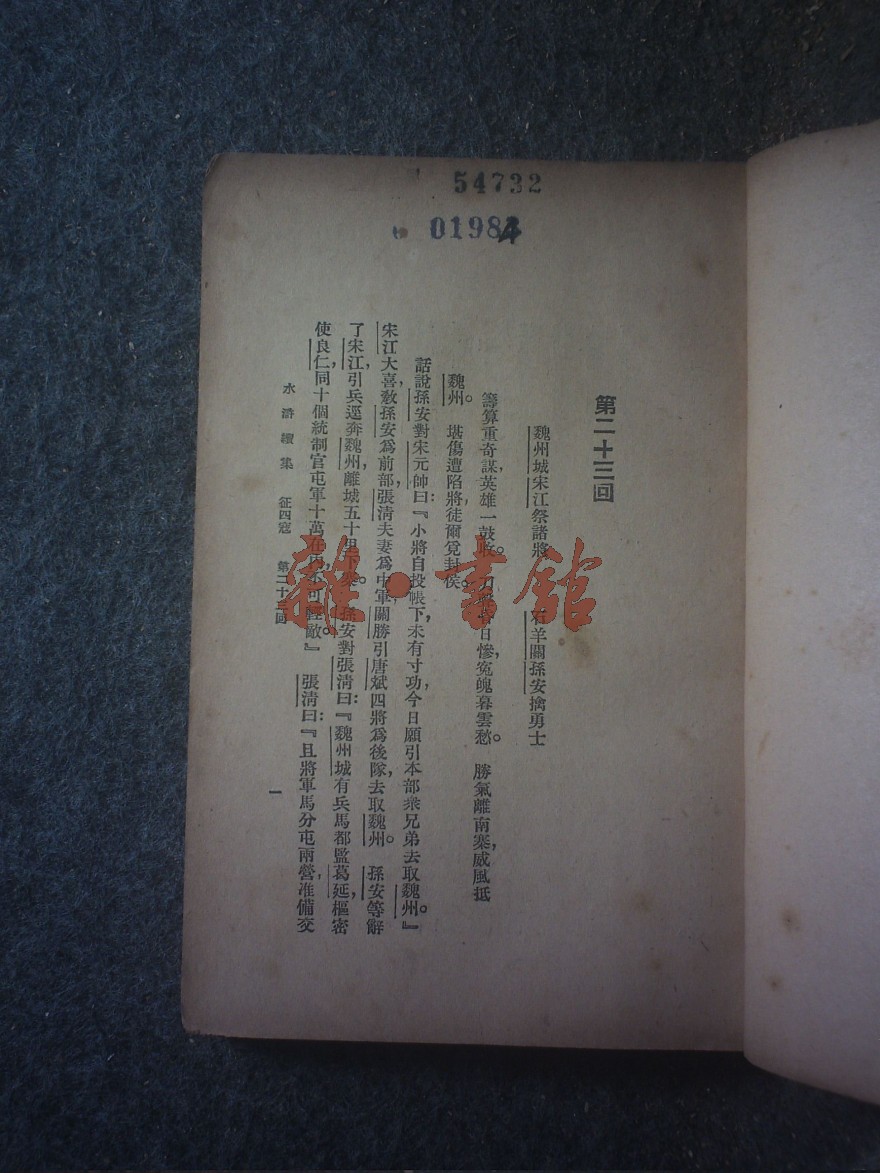 54732
01984
第二十三回
魏州城宋江祭諸將　石羊關孫安擒勇士
籌算重奇謀，英雄一鼓收。日慘，寃魄暮雲愁。　勝氣離南寨，威風抵
魏州。　堪傷遭陷將，徒爾覓封侯。
話說孫安對宋元帥曰：『小將自投帳下，未有寸功，今日願引本部衆兄弟去取魏州。』
宋江大喜，敎孫安爲前部，張淸夫妻爲中軍，關勝引唐斌四將爲後隊，去取魏州。　孫安等辭
了宋江，引兵逕奔魏州，離城五十里。孫安對張淸曰：『魏州城有兵馬都監葛延，樞密
使良仁，同十個統制官屯軍十萬在內，不可輕敵。』　張淸曰：『且將軍馬分屯兩營，准備交
水滸續集　征四寇　第二十三回
一
雜·書館